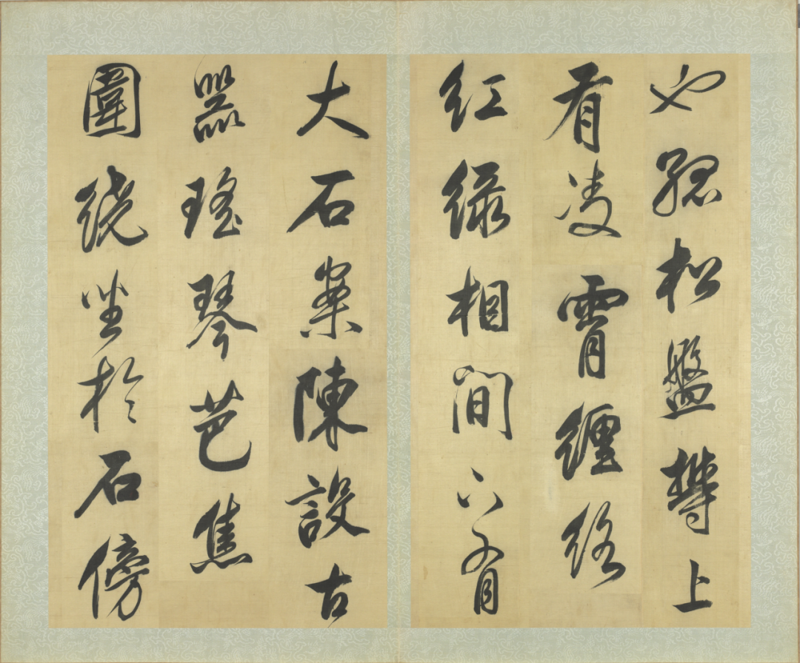 也孤松盤上
有凌霄纏絡
紅綠相間下有
大石案陳設古
器瑤琴芭焦
圍繞坐於石傍